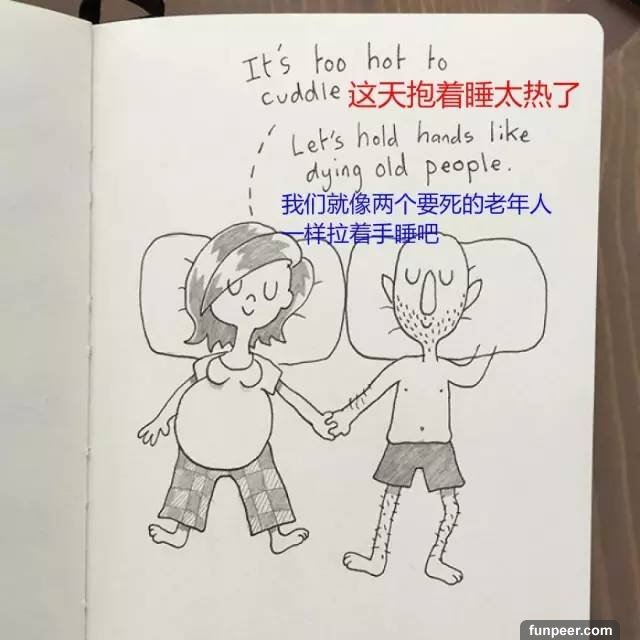 It's too hot to
cuddle 这天抱着睡太热了
Let's hold hands like
dying old people.
我们就像两个要死的老年人
一样拉着手睡吧
funpeer.com